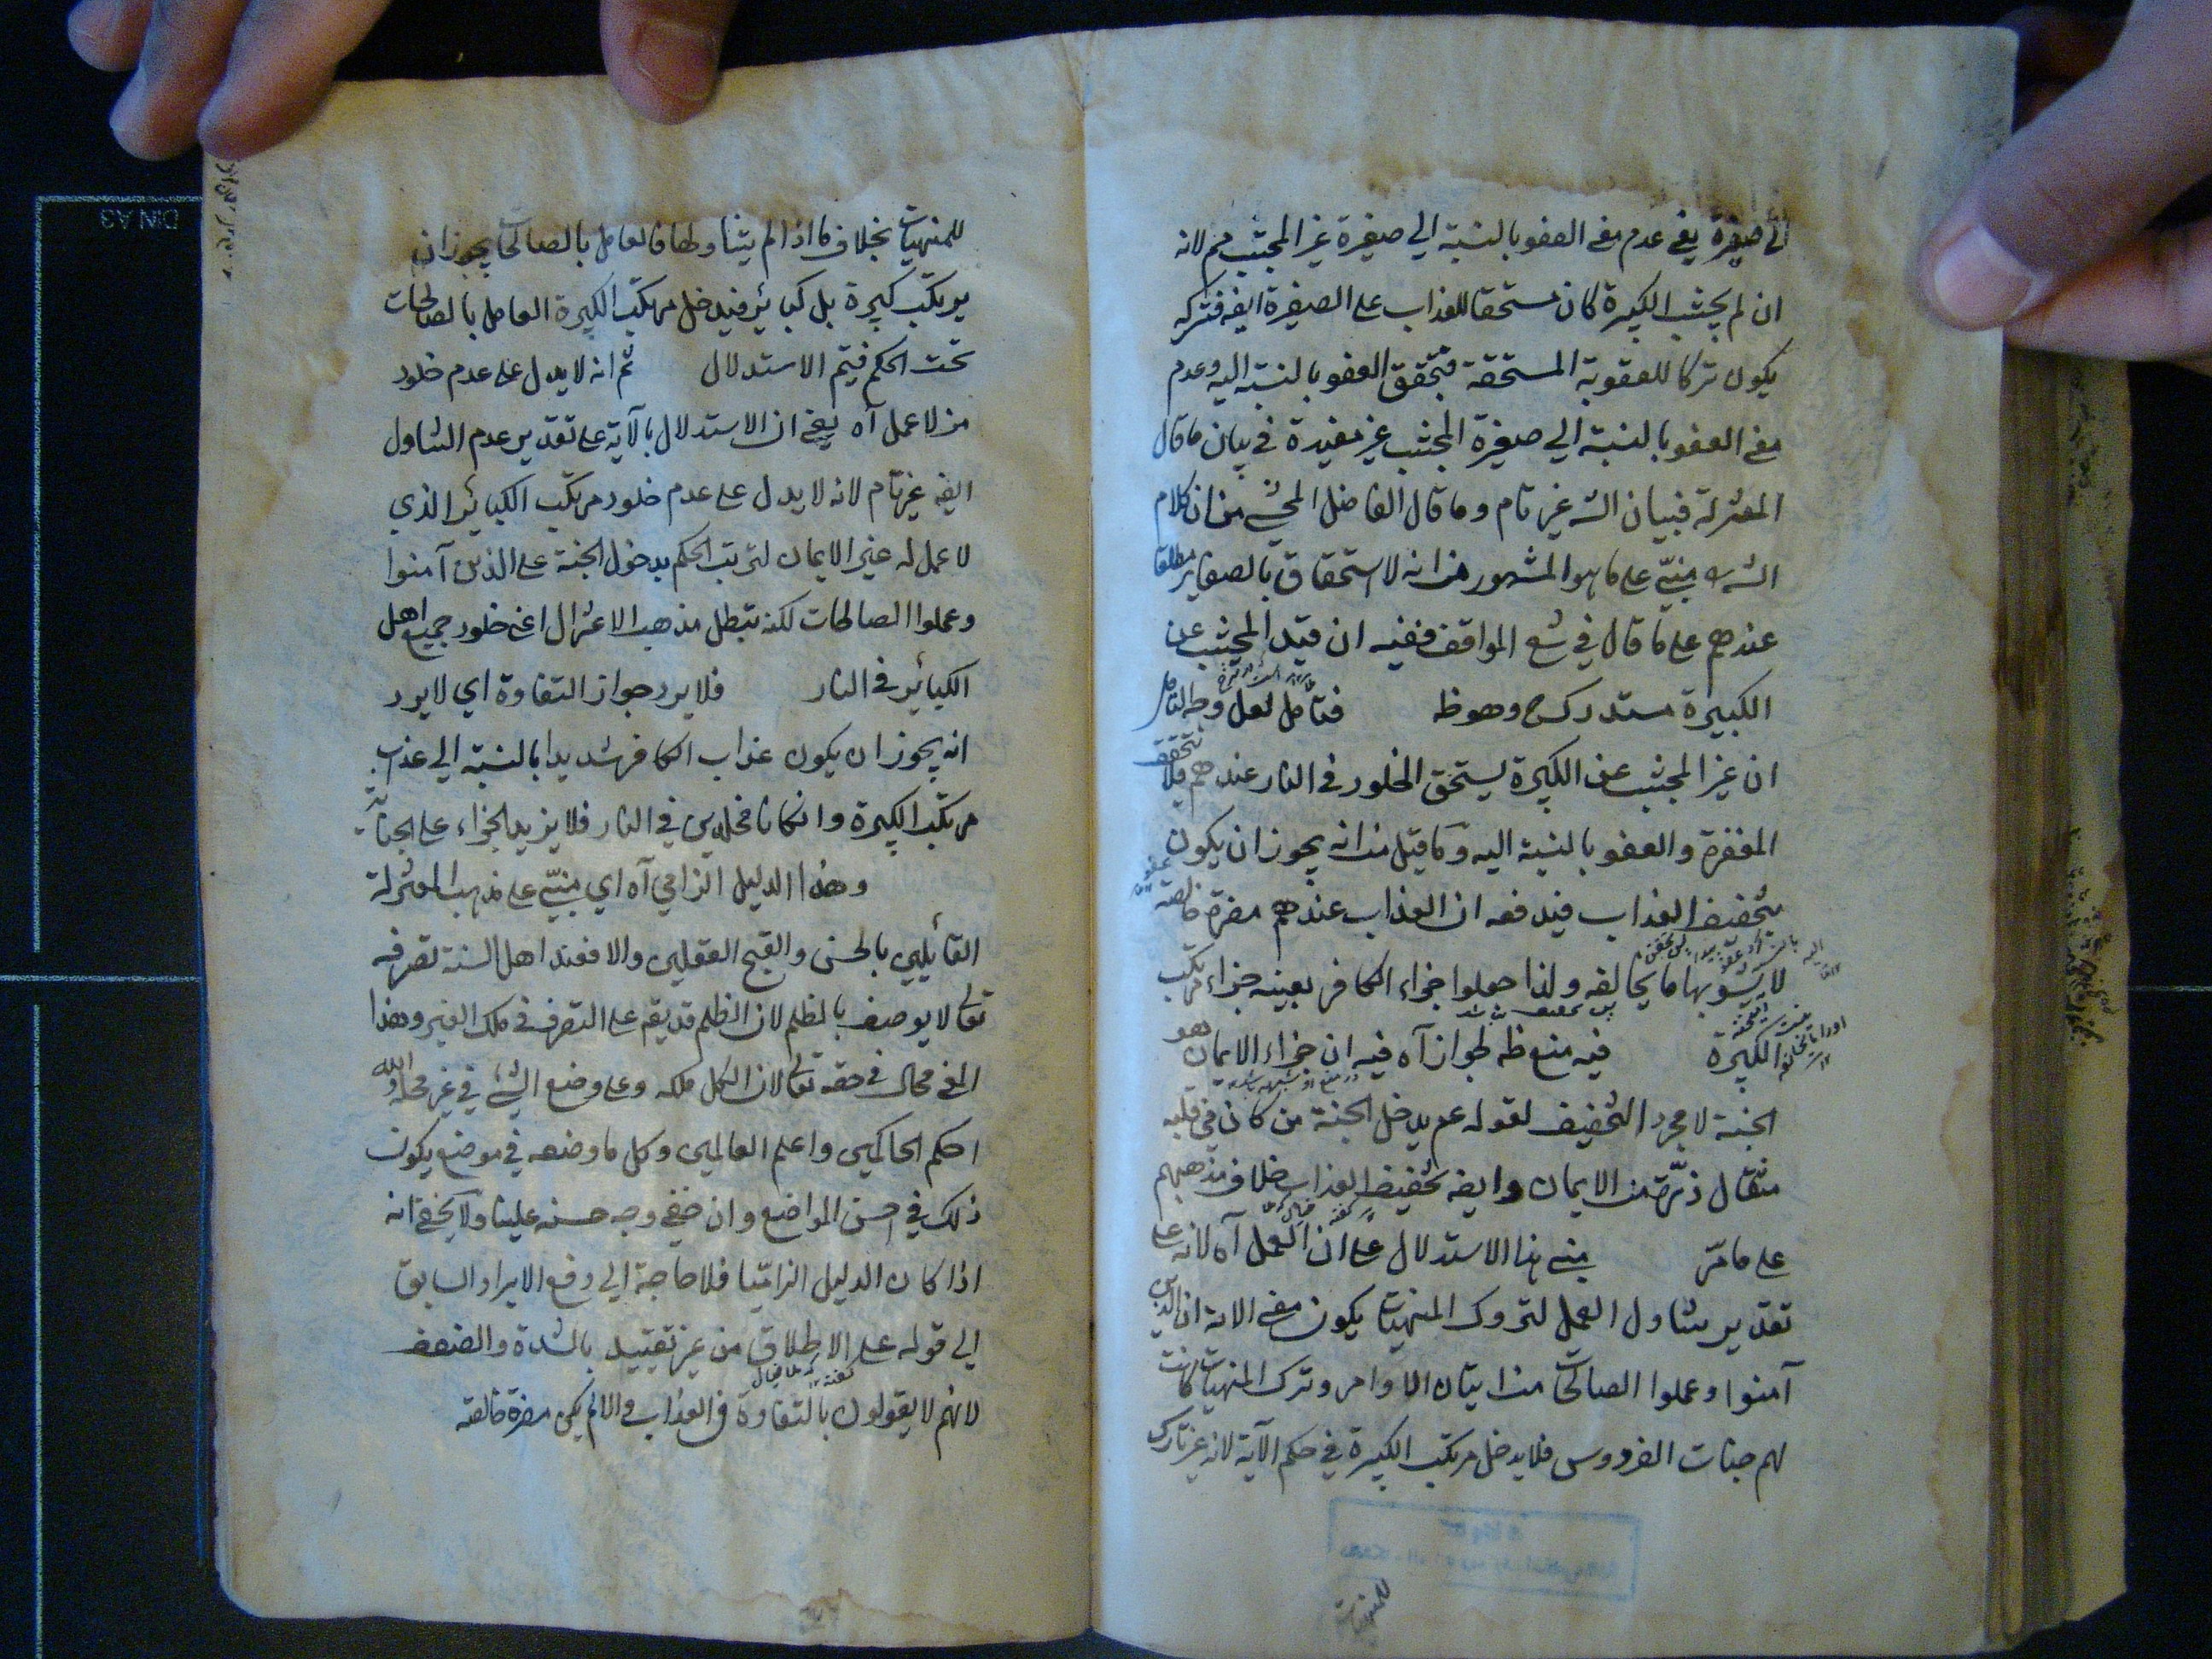 الى صغيرة يعني عدم معنى العفو بالنسبة الي صغيرة غير المجتنب مم لانه
ان لم يجتنب الكبيرة كان مستحقا للعذاب على الصغيرة ايضه فتركه
يكون تركا للعقوبة المستحقة فتحقق العفو بالنسبة اليه وعدم
معنى العفو بالنسبة الي صغيرة المجتنب غير مفيدة في بيان ما قال
المعتزلة فبيان الشه غير تام وما قال الفاضل المحشي من ان كلام
الشه مبنيّ على ما هو المشهور من انه لا استحقاق بالصغاير مطلقا
عندهم على ما قال في شع المواقف ففيه ان قيد المجتنب عن
الكبيرة مستدرك ح وهو ظ فتامل لعل وجه التامل
ان غير المجتنب عن الكبيرة يستحق الخلود في النار عندهم فلا يتحقق
المغفرة والعفو بالنسبة اليه وما قيل من انه يجوز ان يكون
بتخفيف العذاب فيدفعه ان العذاب عندهم مضرة خالصة
لا يشوبها ما يخالفه ولذا جعلوا جزاء الكافر بعينه جزاء مرتكب
الكبيرة فيه منع ظه لجواز آه فيه ان جزاء الايمان هو
الجنة لا مجرد التخفيف لقوله عم يدخل الجنة من كان في قلبه
مثقال ذرّة من الايمان وايضه تخفيف العذاب خلاف مذهبهم
على ما مرّ مبني هذا الاستدلال على ان العمل آه لانه على
تقدير تناول العمل لتروك المنهيات يكون معنى الاية ان الذين
آمنوا وعملوا الصالحات من اتيان الاوامر وترك المنهيات كانت
لهم جنات الفردوس فلا يدخل مرتكب الكبيرة في حكم الآية لانه غير تارك
للمنهيات
للمنهيات بخلاف ما اذا لم يتناولها فالعامل بالصالحات يجوز ان
يرتكب كبيرة بل كبائر فيدخل مرتكب الكبيرة العامل بالصالحات
تحت الحكم فيتم الاستدلال ثم انه لا يدل على عدم خلود
من لا عمل آه يعني ان الاستدلال بالآية على تقدير عدم التناول
ايضه غير تام لانه لا يدل على عدم خلود مرتكب الكبائر الذي
لا عمل له غير الايمان لترتب الحكم بدخول الجنة على الذين آمنوا
وعملوا الصالحات لكنه يبطل مذهب الاعتزال اعني خلود جميع اهل
الكبائر في النار فلا يرد جواز التفاوة اي لا يرد
انه يجوز ان يكون عذاب الكافر شديدا بالنسبة الي عذاب
مرتكب الكبيرة وان كانا مخلدين في النار فلا يزيد الجزاء على الجناية
وهذا الدليل الزامي آه اي مبنيّ على مذهب المعتزلة
القائلين بالحسن والقبح العقليين والا فعند اهل السنة تصرفه
تعالى لا يوصف بالظلم لان الظلم قد يقع على التصرف في ملك الغير وهذا
المعنى محال في حقه تعالى لان الكل ملكه وعلى وضع الشئ في غير محله والله
احكم الحاكمين واعلم العالمين وكل ما وضعه في موضع يكون
ذلك في احسن المواضع وان خفي وجه حسنه علينا ولا يخفى انه
اذا كان الدليل الزاميّا فلا حاجة الي دفع الايراد السابق
الي قوله على الاطلاق من غير تقييد بالشدة والضعف
لانهم لا يقولون بالتفاوة في العذاب والا لم يكن مضرة خالصة